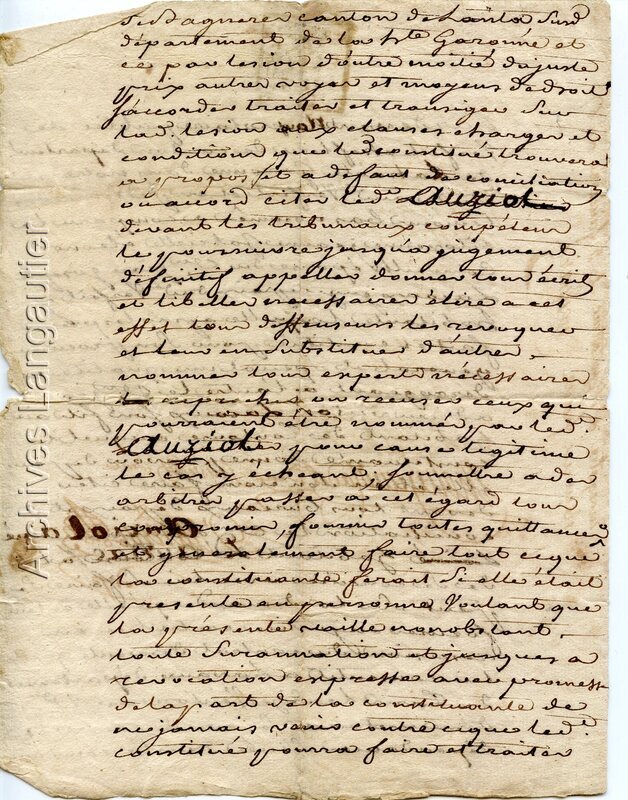 de Stagnere canton de Lanta Sud.
département de la hte Garonne et
ce par lesion d'outre moitié du juste
prix autres voyes et moyens de droit
s'accorder traiter et transiger sur
lad. lesion aux clauses charges et
conditions que led. constitué trouvera
a propos et a defaut de conciliation
ou accord citer led. Auziol
devant les tribunaux competeur
le poursuivre jusqu'a jugement
definitif appeller donner tous écrits
et libelles necessaires élire a cet
effet tous deffenseurs les revoquer
et leur en substituer d'autres
nommer tous experts necessaires
reprocher ou recuser ceux qui
pourraient être nommés par led.
Auziol pour cause legitime
le cas y echeant, soumettre a des
arbitres passer a cet égard tous
compromis, fournir toutes quittances
et generalement faire tout ceque
la constituante ferait si elle était
presente en personne Voulant que
la présente vaille nonobstant
toute surannation et jusques a
revocation expresse avec promesse
delapart de la constituante de
ne jamais venir contre ceque led.
constitué pourra faire et traiter
Archives Langautier